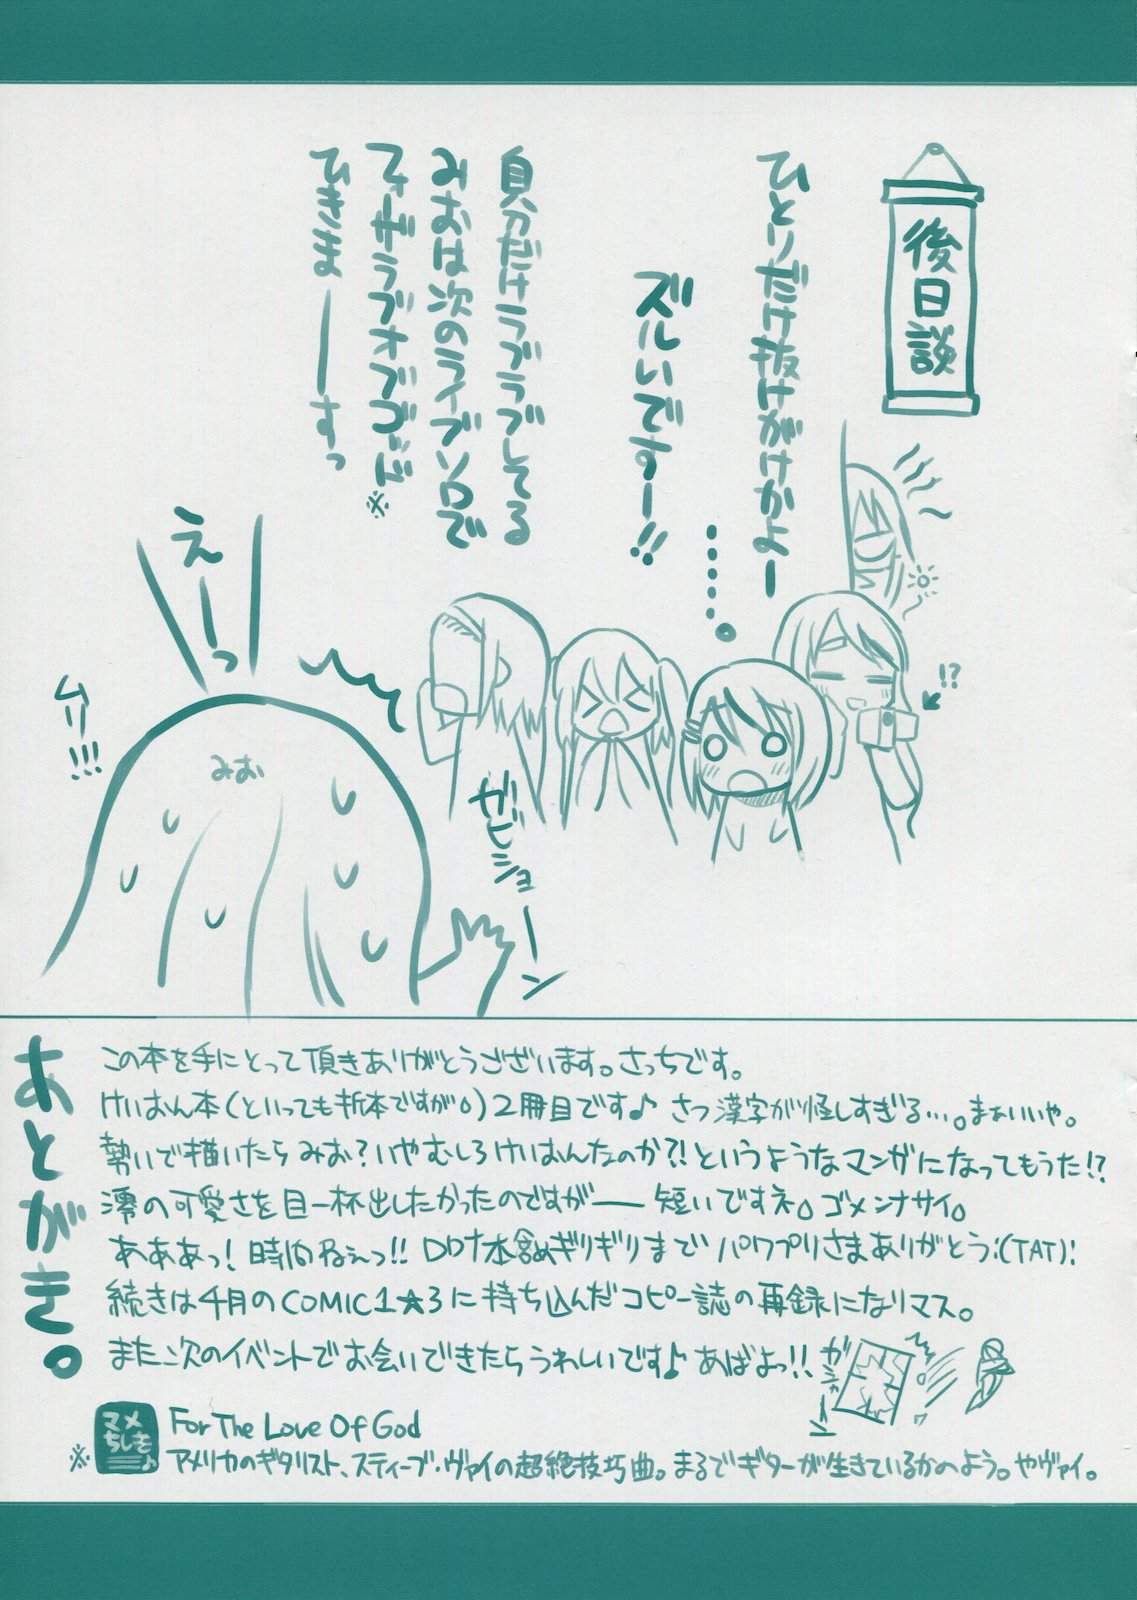 後日談
ひとりだけ抜けがけかよー
ズルいですー!!
自分だけラブラブしてる
みおは次のライブソロで
フォーザラブオブゴッド※
ひきまーーーすっ
!?
えーっ
ムリ!!!
みお
ガビショーン
あとがき。
この本を手にとって頂きありがとうございます。さっちです。
けいおん本(といっても折本ですが。)2冊目です♪ さっ漢字が怪しすぎる…。まぁいいや。
勢いで描いたらみお?いやむしろけいおんなのか?!というようなマンガになってもうた!?
澪の可愛さを目一杯出したかったのですが── 短いですネ。ゴメンナサイ。
あああっ!時間ねぇっ!! ギリギリまで パワプリさまありがとう:(TAT):
続きは4月のCOMIC1☆3に持ち込んだコピー誌の再録になりマス。
また次のイベントでお会いできたらうれしいです♪ あばよっ!!
マメちしき♪
For The Love Of God
※アメリカのギタリスト、スティーブ・ヴァイの超絶技巧曲。まるでギターが生きているかのよう。やヴァイ。